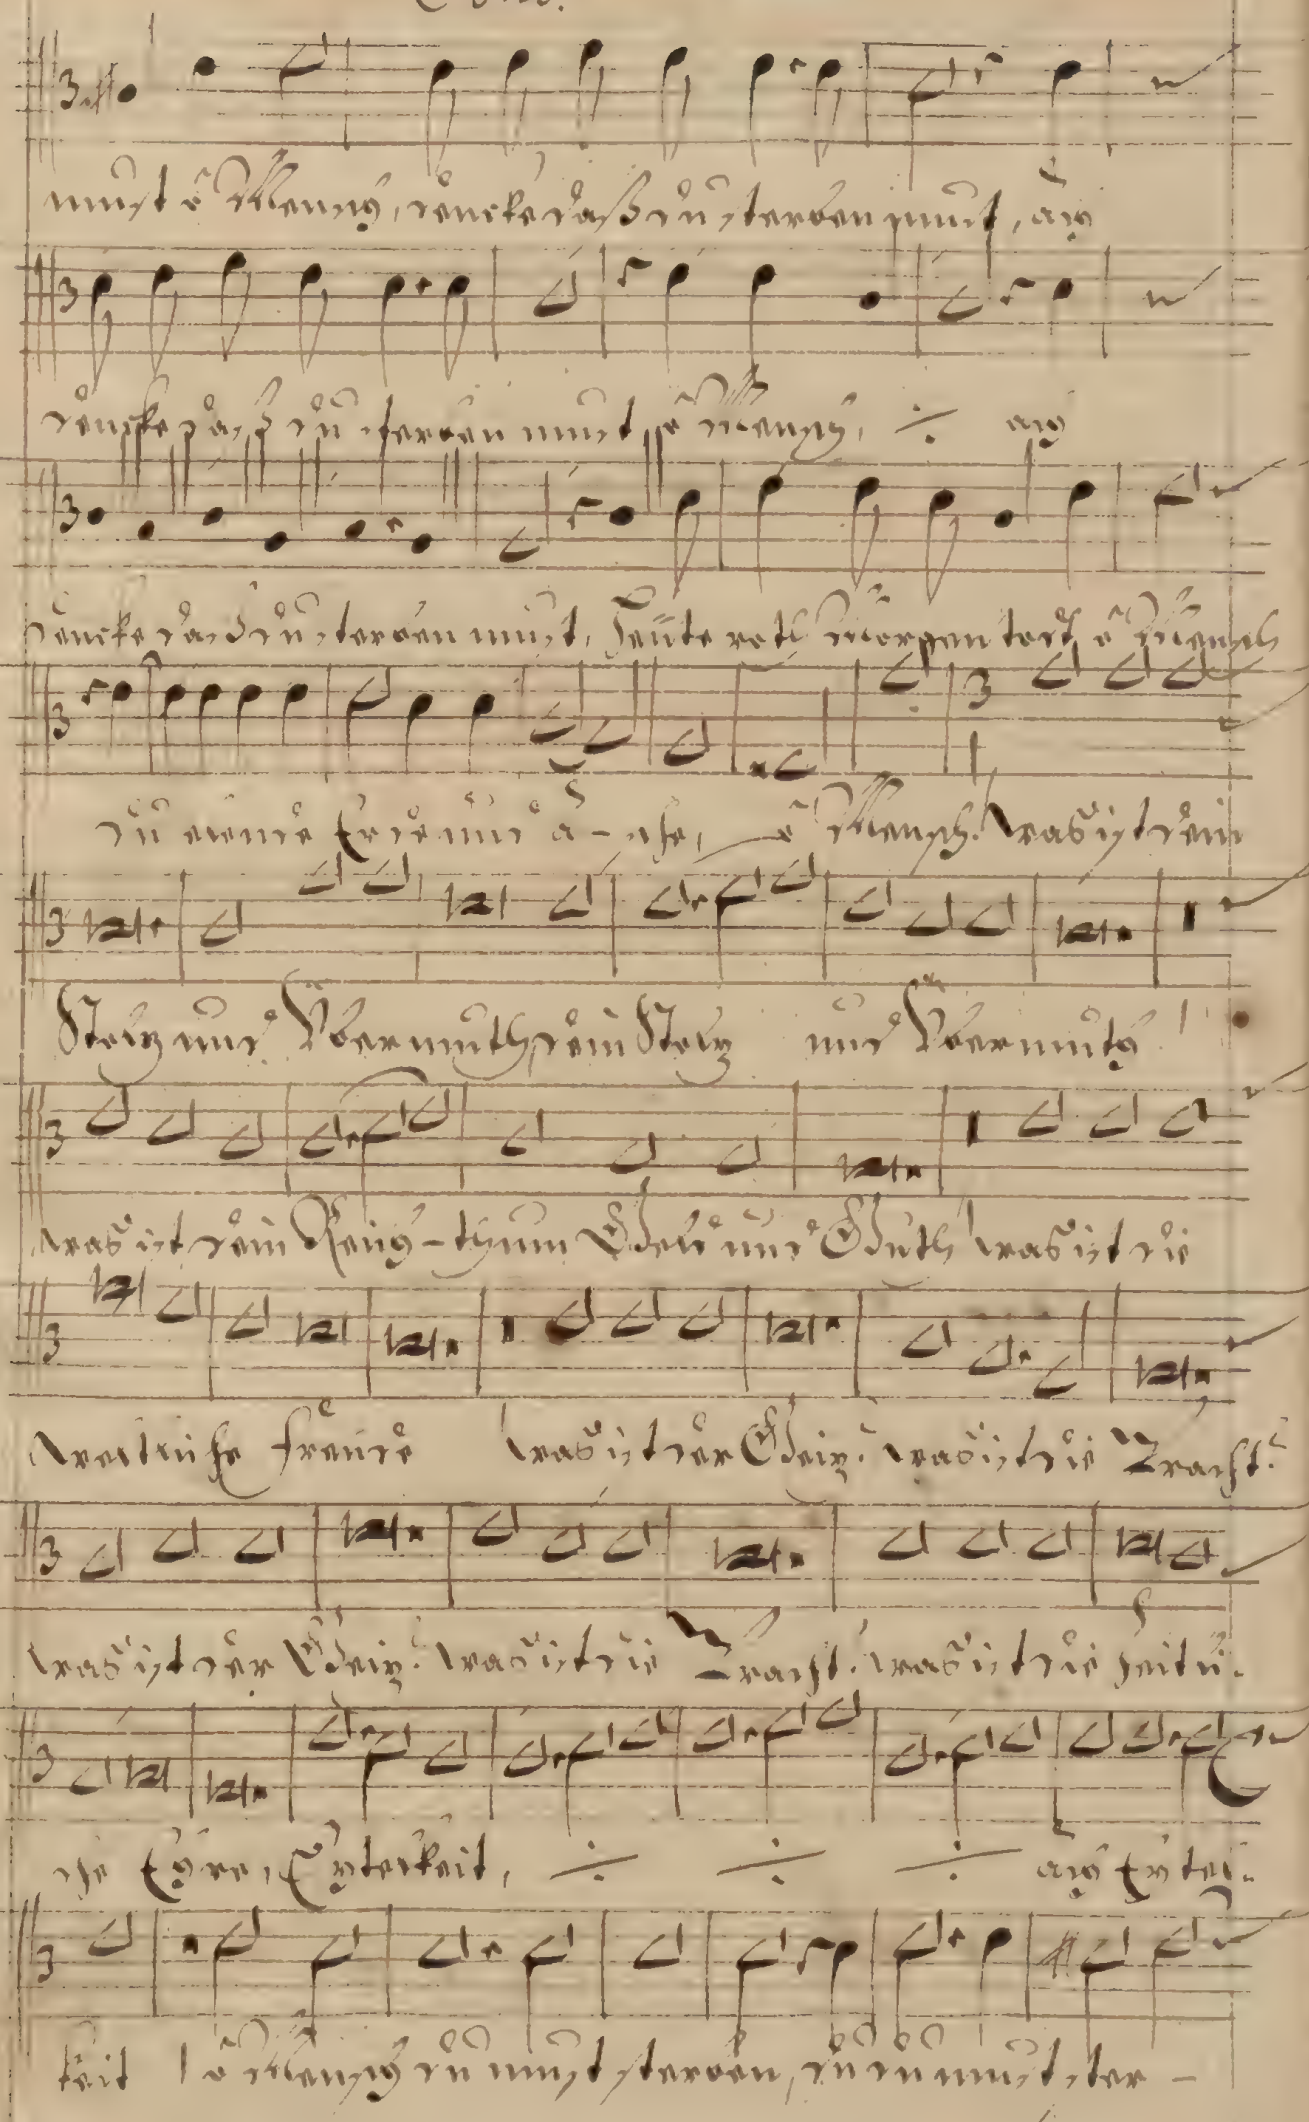 must ô Mensch, dencke daß du sterben must, ach
dencke daß du sterben must, ô Mensch, ÷ ach
dencke daß du sterben must, Heute roth Morgen todt ô Mensch
du elende Erde und a-sche, ô Mensch. Was ist dein
Stoltz und Ubermuth, dein Stoltz und Ubermuth
was ist dein Reich-thum Geld und Guth was ist die
Weltliche freude was ist der Geitz? was ist die Pracht?
was ist der Geitz? was ist die Pracht? was ist die zeitli-
che Ehre, Eytelkeit, ÷ ÷ ÷ ach Eytel-
keit ô Mensch du must sterben, du du must ster-